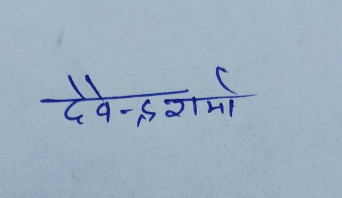 देवेन्द्र शर्मा